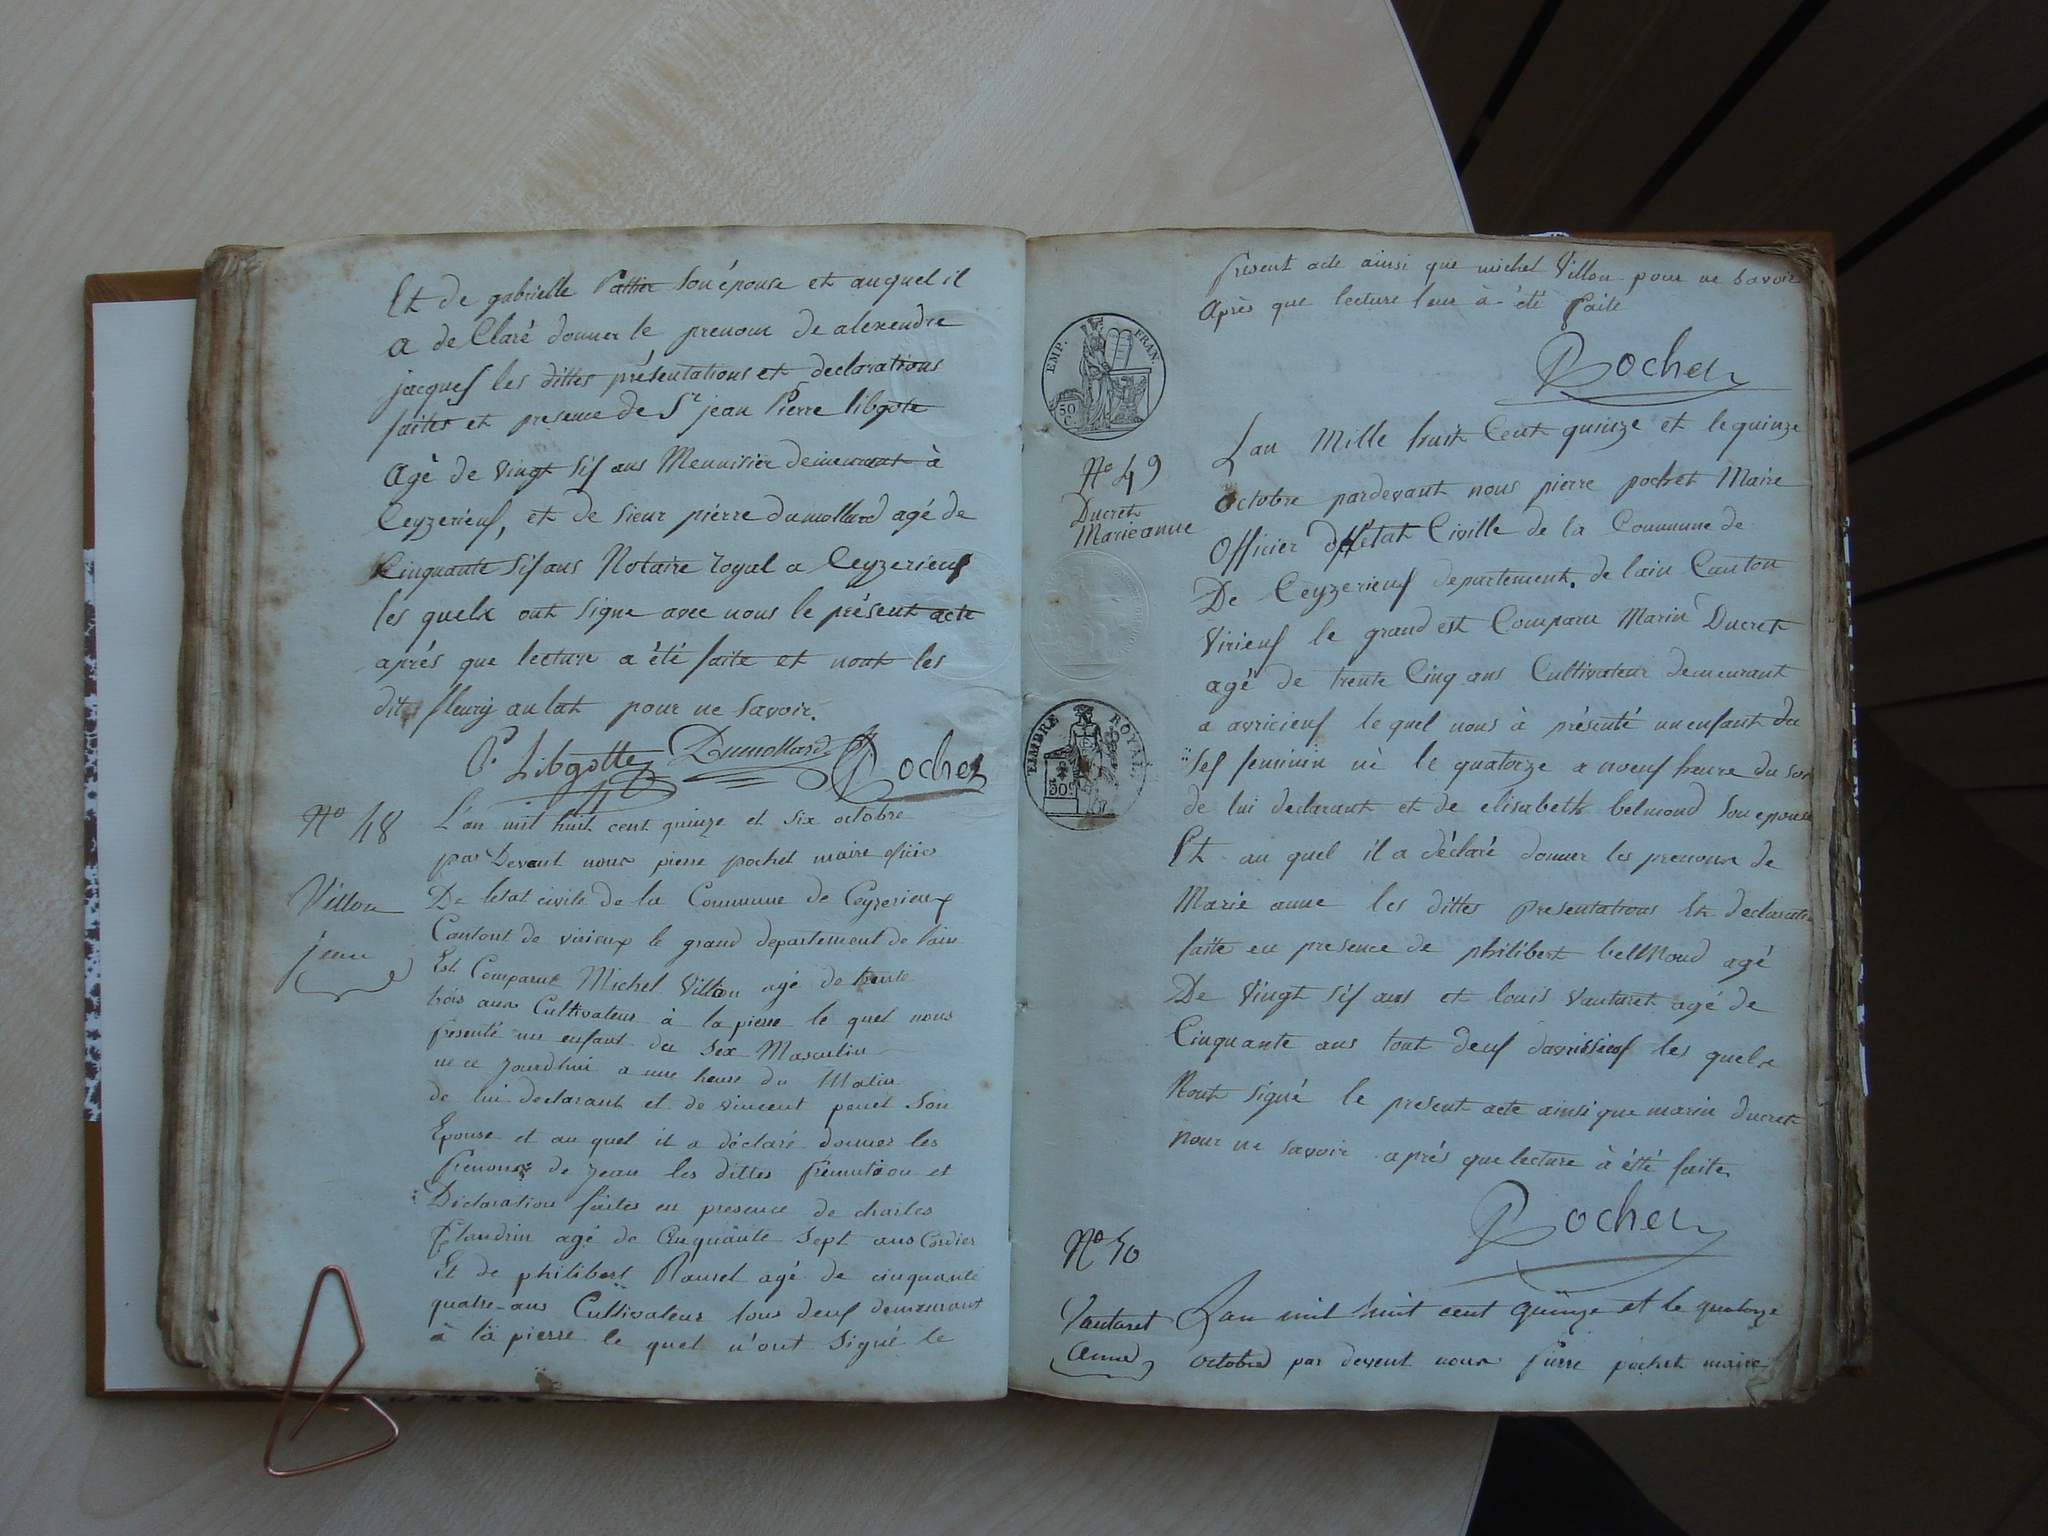 Et de gabrielle Pattier son épouse et auquel il
a de Claré donner le prenom de alexendre
jacques les dittes présentations et declarations
faites et presence de Sr jean Pierre libgote
Agè de vingt sif ans Menuisier demeurant à
Ceyzerieuf, et de sieur pierre dumollard agé de
Cinquante sif ans Notaire royal a Ceyzerieuf
les quels ont signe avec nous le présent acte
aprés que lecture a été faite et nont les
dit fleury au lat pour ne savoir.
P. Libgotte Dumollard Pochet
No 48
Villon
jean
L'an mil huit cent quinze et six octobre
par Devant nous pierre pochet maire officie
De letat civile de la Commune de Ceyzerieux
Contont de virieux le grand departement de lain
Est Comparue Michel Villon agé de trente
trois ans Cultivateur à la pierre le quel nous
présenté un enfant du Sex Masculin
ne ce jourdhui a une heure du Matin
de lui declarant et de vincent penet son
Epouse et au quel il a déclaré donner les
Prenoms de jean les dittes et
Déclaration faites en presence de charles
Flandrin agé de Cinquante sept ans Cordier
Et de philibert Ravsel agé de cinquante
quatre ans Cultivateur tous deuf demeurant
à la pierre le quel n'ont Signé le
Présent acte ainsi que michel Villon pour ne savoir
Après que lecture leur à été faite
Pochet
EMP. FRAN.
50 C.
No 49
Ducret
Marieanne
TIMBRE ROYAL
50 c
Lan Mille huit Cent quinze et le quinze
octobre pardevant nous pierre pochet Maire
Officier d'état Civille de la Commune de
De Ceyzerieuf departement de lain Canton
Virieuf le grand est Comparu Marin Ducret
agé de trente Cinq ans Cultivateur demeurant
a avricieuf le quel nous à présenté un enfant du
Sef feminin né le quatorze a noeuf heure du soir
de lui declarant et de elisabeth belmond son epouse
Et au quel il a déclaré donner les prenoms de
Marie anne les dittes presentations Et declaration
faite en presence de philibert bellmond agé
De Vingt sif ans et louis Vauturet agé de
Cinquante ans tout deuf davrissieuf les quels
Nont signé le present acte ainsi que marin ducret
pour ne savoir aprés que lecture à été faite
Pochet
No 50
Vauturet
Anne
Lan mil huit cent quinze et le quatorze
octobre par devent nous Pierre pochet maire